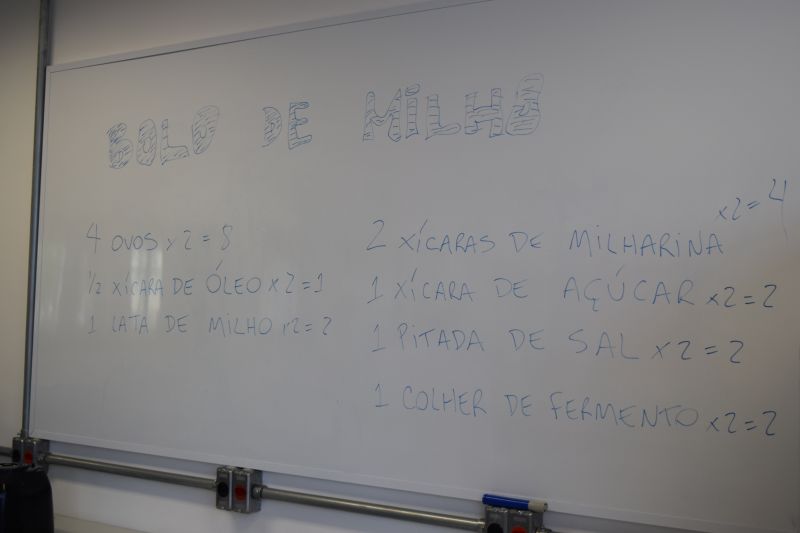 BOLO DE MILHO
4 OVOS x 2 = 8
1/2 XÍCARA DE ÓLEO x 2 = 1
1 LATA DE MILHO x2 = 2
2 XÍCARAS DE MILHARINA x2 = 4
1 XÍCARA DE AÇÚCAR x2 = 2
1 PITADA DE SAL x 2 = 2
1 COLHER DE FERMENTO x2 = 2